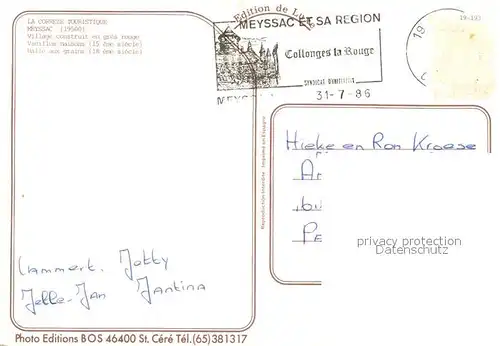 LA CORREZE TOURISTIQUE
MEYSSAC (19500)
Village construit en grès rouge
Vieilles maisons (15 ème siècle)
Halle aux grains (18 ème siècle)
Edition de Luxe
MEYSSAC ET SA REGION
Collonges la Rouge
SYNDICAT D'INITIATIVE
31-7-86
MEYSSAC
19
19-193
Reproduction Interdite Imprimé en Espagne
Hieke en Ron Kroese
privacy protection
Datenschutz
Lammert. Jetty
Jelle-Jan Jantina
Photo Editions BOS 46400 St. Céré Tél.(65)381317